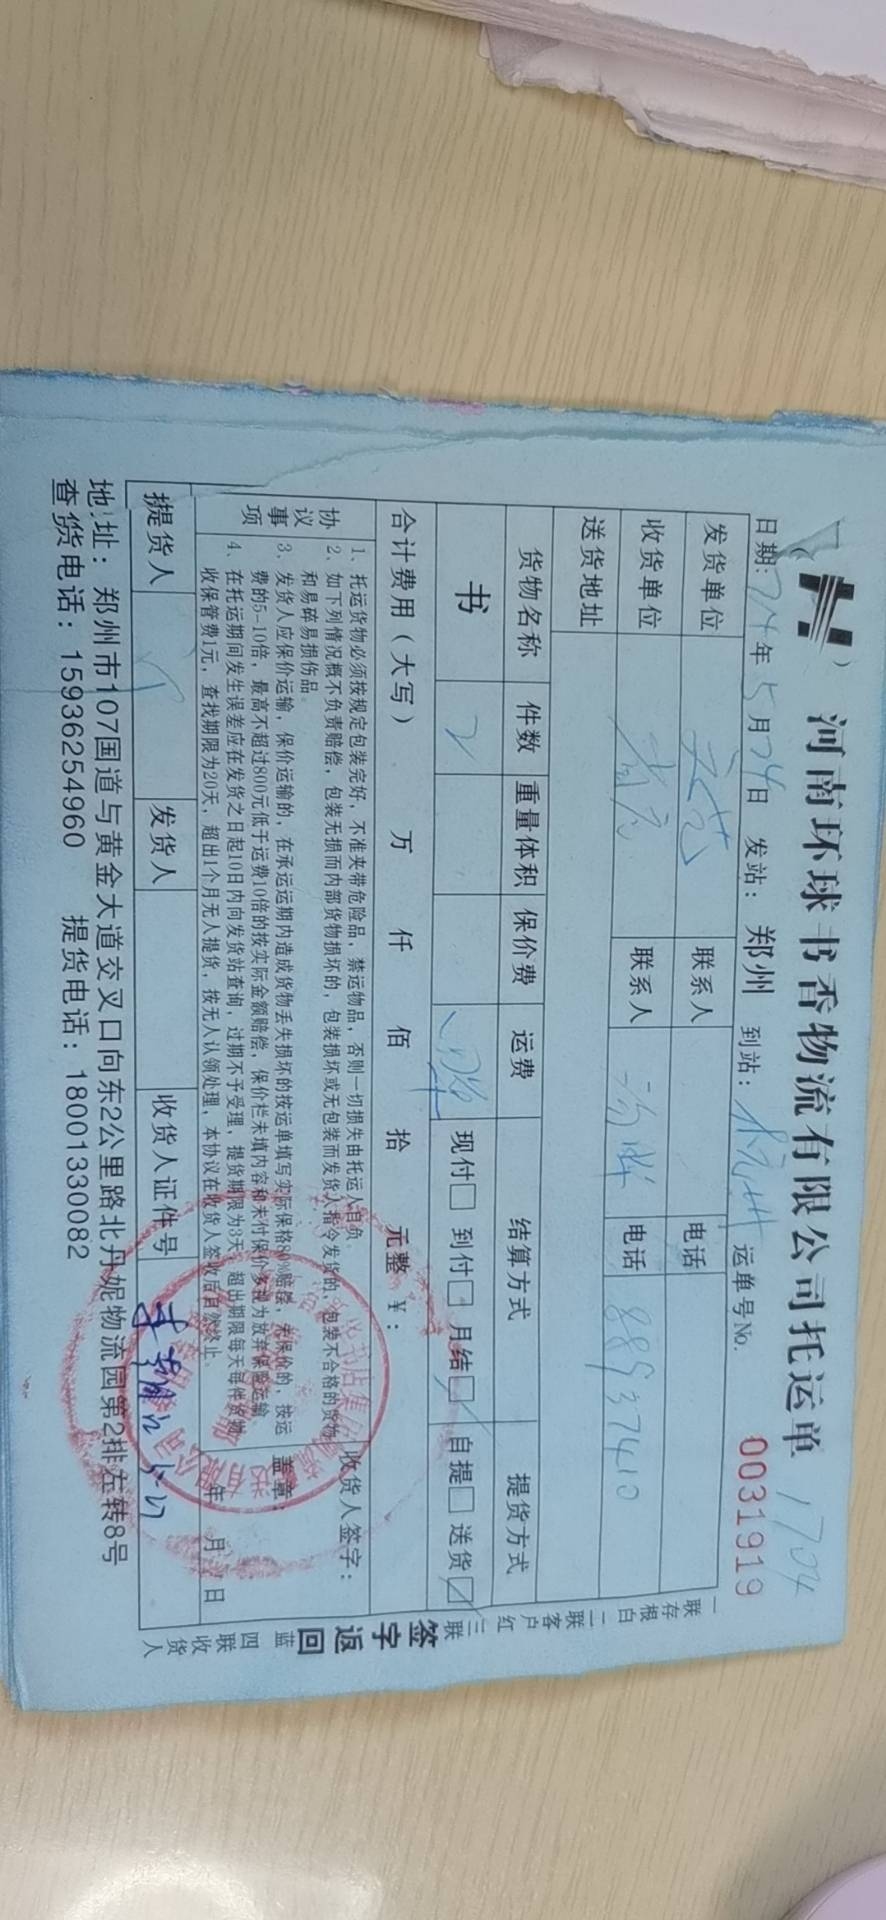 河南环球书香物流有限公司托运单 1704
日期: 24年5月24日 发站: 郑州 到站: 杭州 运单号No. 0031919
发货单位 联系人 电话
收货单位 联系人 电话 88937410
送货地址
货物名称 件数 重量体积 保价费 运费 结算方式 提货方式
书 2 现付□ 到付□ 月结□ 自提□ 送货☑
合计费用(大写) 万 仟 佰 拾 元整 ¥:
协议事项
1、托运货物必须按规定包装完好,不准夹带危险品,禁运物品,否则一切损失由托运人自负。
2、如下列情况概不负责赔偿,包装无损而内部货物损坏的,包装损坏或无包装而发货人指令发货的,包装不合格的货物
和易碎易损伤品。
3、发货人应保价运输,保价运输的,在承运运期内造成货物丢失损坏的按运单填写实际保格80%赔偿,未保价的,按运
费的5-10倍,最高不超过800元低于运费10倍的按实际金额赔偿,保价栏未填内容和未付保价费视为放弃保险运输
4、在托运期间发生误差应在发货之日起10日内向发货站查询,过期不予受理,提货期限为3天,超出期限每天每件货物
收保管费1元,查找期限为20天,超出1个月无人提货,按无人认领处理,本协议在收货人签收后自然终止。
收货人签字:
盖章:
年 月 日
提货人 发货人 收货人证件号
地址: 郑州市107国道与黄金大道交叉口向东2公里路北丹妮物流园第2排左转8号
查货电话: 15936254960 提货电话: 18001330082
一联存根白 二联客户红 三联签字返回蓝 四联收货人